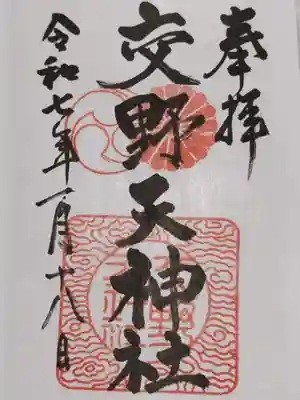 奉拝
交野天神社
令和七年一月十八日